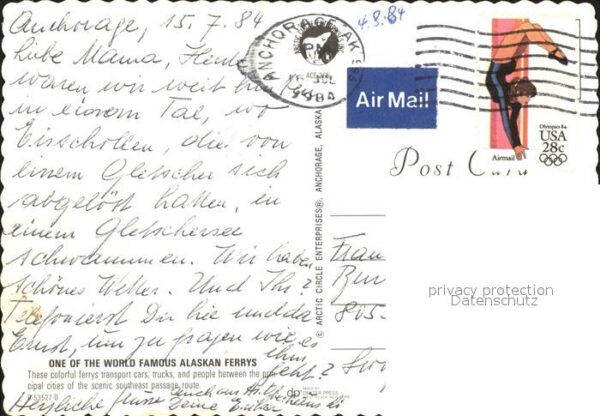 Anchorage, 15.7.84
liebe Mama, Heute
waren wir weit
in einem Tal, wo
Eisschollen, die von
einem Gletscher sich
abgelöst hatten, in
einem Gletschersee
schwammen. Wir haben
schönes Wetter. Und Ihr?
Telefonierst Du hie und da
Ernst, um zu fragen wie es
ihm geht?
ONE OF THE WORLD FAMOUS ALASKAN FERRYS
These colorful ferrys transport cars, trucks, and people between the
cipal cities of the scenic southeast passage route.
Herzliche Grüsse
© ARCTIC CIRCLE ENTERPRISES®, ANCHORAGE, ALASKA
ANCHORAGE, AK
PM
1984
4.8.84
Air Mail
Olympics 84
USA
28c
Airmail
Post Card
Frau
805-
privacy protection
Datenschutz